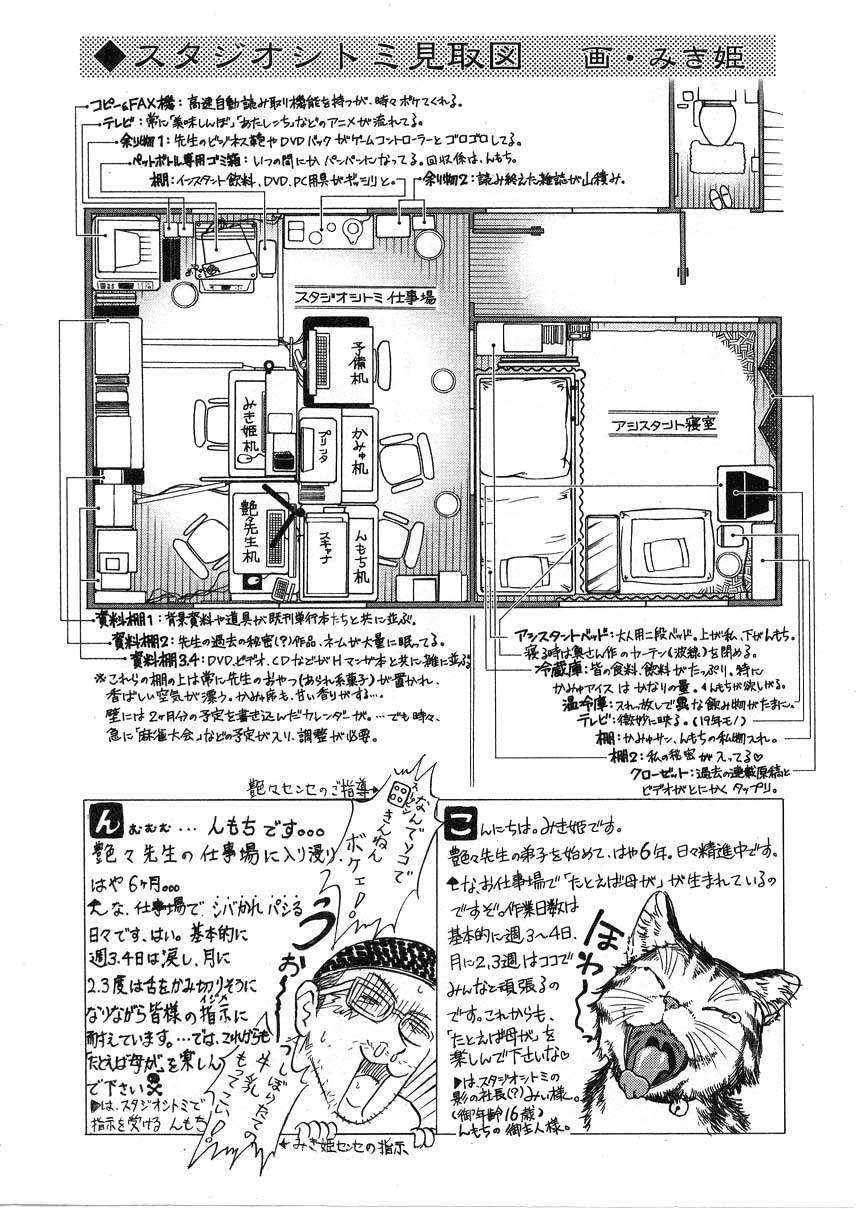 ◆スタジオシトミ見取図　画・みき姫
コピー&FAX機：高速自動読み取り機能を持つが、時々ボケてくれる。
テレビ：常に「美味しんぼ」「あたしンち」などのアニメが流れてる。
余り物1：先生のビジネス鞄やDVDパックがゲームコントローラーとゴロゴロしてる。
ペットボトル専用ゴミ箱：いつの間にかパンパンになってる。回収係は、んもち。
棚：インスタント飲料、DVD、PC用具がギッシリと。
余り物2：読み終えた雑誌が山積み。
スタジオシトミ仕事場
予備机
みき姫机
プリンタ
かみゅ机
艶々先生机
スキャナ
んもち机
アシスタント寝室
資料棚1：背景資料や道具が既刊単行本たちと共に並ぶ。
資料棚2：先生の過去の秘密(?)作品、ネームが大量に眠ってる。
資料棚3.4：DVD、ビデオ、CDなどがHマンガ本と共に雑に並ぶ。
※これらの棚の上は常に先生のおやつ(あられ系菓子)が置かれ、
香ばしい空気が漂う。かみゅ席も、甘い香りがする…。
壁には2ヶ月分の予定を書き込んだカレンダーが。…でも時々、
急に「麻雀大会」などの予定が入り、調整が必要。
アシスタントベッド：大人用二段ベッド。上が私、下がんもち。
寝る時は奥さん作のカーテン(波線)を閉める。
冷蔵庫：皆の食料、飲料がたっぷり。特に
かみゅアイスはかなりの量。んもちが欲しがる。
温冷庫：スイッチ放しで異な飲み物がたまに。
テレビ：微妙に映る。(19年モノ)
棚：かみゅサン、んもちの私物入れ。
棚2：私の秘密が入ってる♡
クローゼット：過去の連載原稿と
ビデオがとにかくタップリ。
艶々センセのご指導→
なんでソコで
きんねん
ボケェ!
んむむむ…んもちです。。。
艶々先生の仕事場に入り浸り、
はや6ヶ月。。。
そんな、仕事場でシバかれパシる
日々です、はい。基本的に
週3.4日は涙し、月に
2.3度は舌をかみ切りそうに
なりながら皆様の指示に
イジメ
耐えています。…では、これからも
「たとえば母が」を楽しん
で下さい☠
▶は、スタジオシトミで
指示を受けるんもち
うぉー
しぼりたての
牛乳
もってこい!
←みき姫センセの指示
こんにちは。みき姫です。
艶々先生の弟子を始めて、はや6年。日々精進中です。
そんな、お仕事場で「たとえば母が」が生まれているの
ですぞ。作業日数は
基本的に週3〜4日、
月に2,3週はココで
みんなと頑張るの
です。これからも、
「たとえば母が」を
楽しんで下さいな♡
▶は、スタジオシトミの
影の社長(?)みぃ様〜。
(御年齢16歳)
んもちの御主人様。
ほわー〜っ